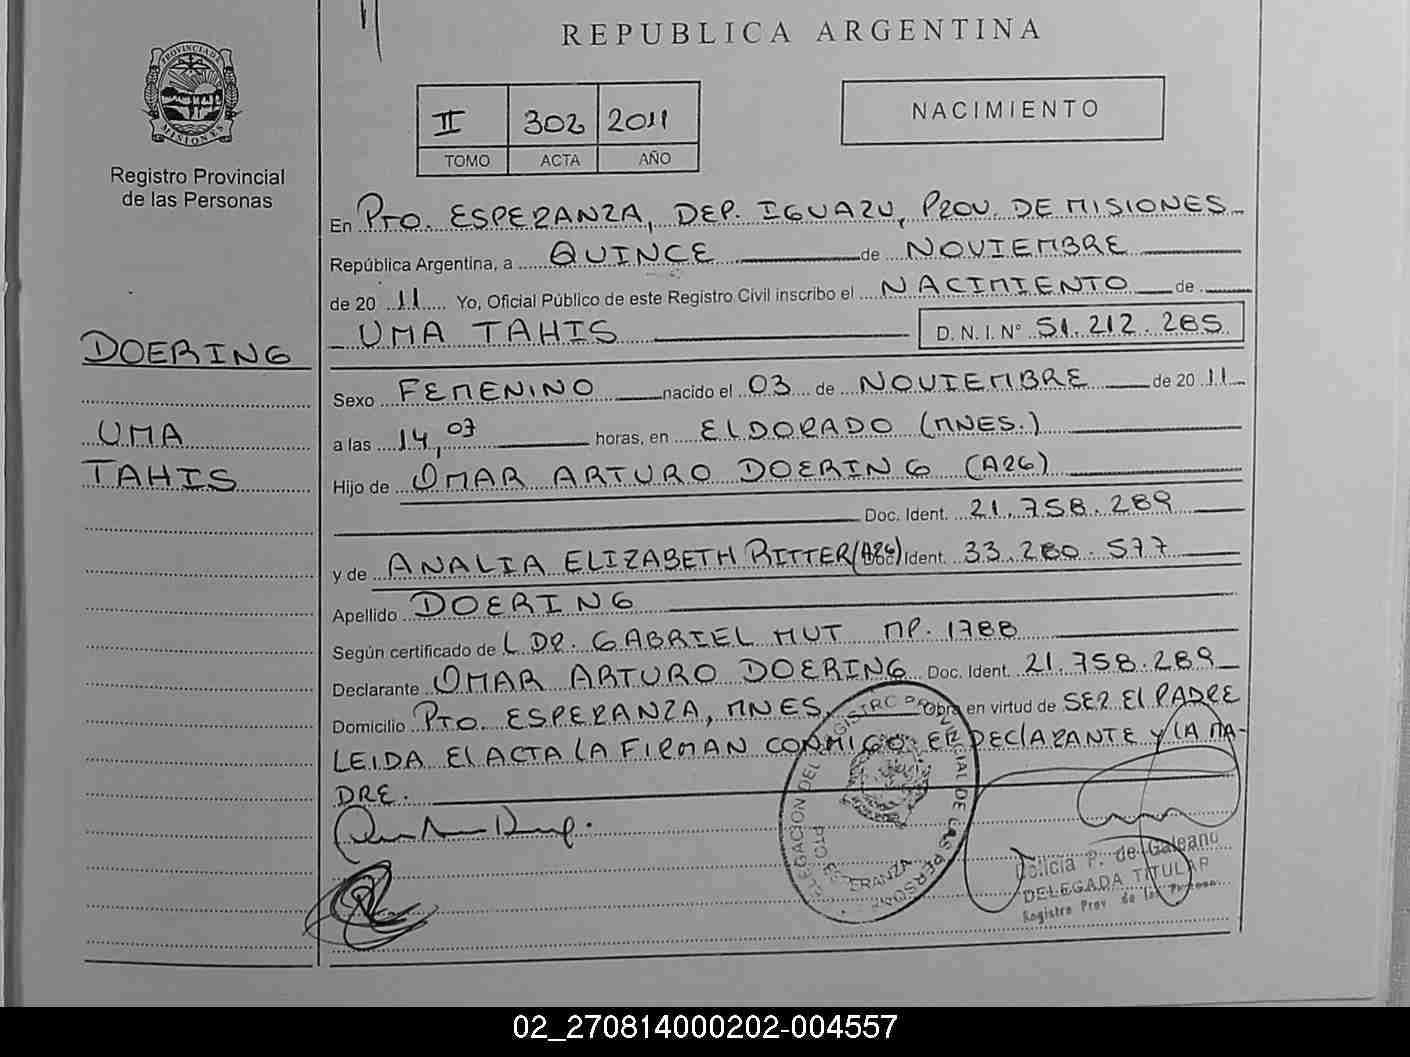 REPUBLICA ARGENTINA
PROVINCIA DE
MISIONES
Registro Provincial
de las Personas
II 302 2011
TOMO ACTA AÑO
NACIMIENTO
En PTO. ESPERANZA, DEP. IGUAZU, PROV. DE MISIONES
República Argentina, a QUINCE de NOVIEMBRE
de 20 11 Yo, Oficial Público de este Registro Civil inscribo el NACIMIENTO de
UMA TAHIS D. N. I. Nº 51.212.285
DOERING
Sexo FEMENINO nacido el 03 de NOVIEMBRE de 20 11
UMA
a las 14,07 horas, en ELDORADO (MNES.)
TAHIS
Hijo de OMAR ARTURO DOERING (ARG)
Doc. Ident. 21.758.289
y de ANALIA ELIZABETH RITTER (ARG) Doc. Ident. 33.280.577
Apellido DOERING
Según certificado de L DR. GABRIEL HUT MP. 1788
Declarante OMAR ARTURO DOERING Doc. Ident. 21.758.289
Domicilio PTO. ESPERANZA, MNES. Obra en virtud de SER El PADRE
LEIDA El ACTA LA FIRMAN CONMIGO El DEClARANTE Y lA MA-
DRE.
DELEGACION DEL REGISTRO PROVINCIAL DE LAS PERSONAS
PTO ESPERANZA
P. de Galeano
DELEGADA TITULAR
Registro Prov de las Personas
02_270814000202-004557